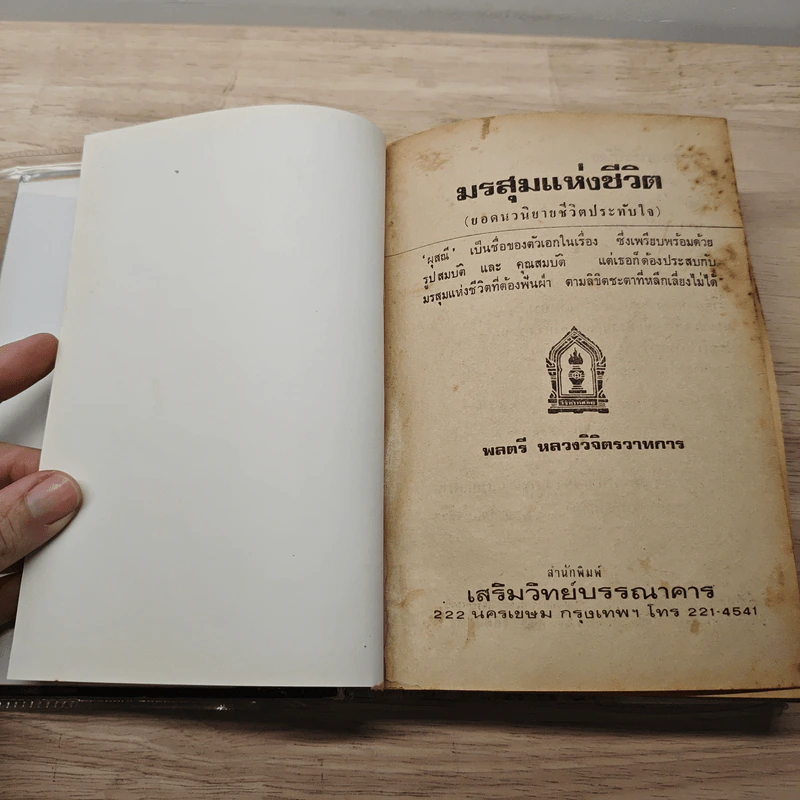 มรสุมแห่งชีวิต
(ยอดนวนิยายชีวิตประทับใจ)
'ผุสณี' เป็นชื่อของตัวเอกในเรื่อง ซึ่งเพรียบพร้อมด้วย
รูปสมบัติ และ คุณสมบัติ แต่เธอก็ต้องประสบกับ
มรสุมแห่งชีวิตที่ต้องฟันฝ่า ตามลิขิตชะตาที่หลีกเลี่ยงไม่ได้
พลตรี หลวงวิจิตรวาทการ
สำนักพิมพ์
เสริมวิทย์บรรณาคาร
222 นครเขษม กรุงเทพฯ โทร 221-4541